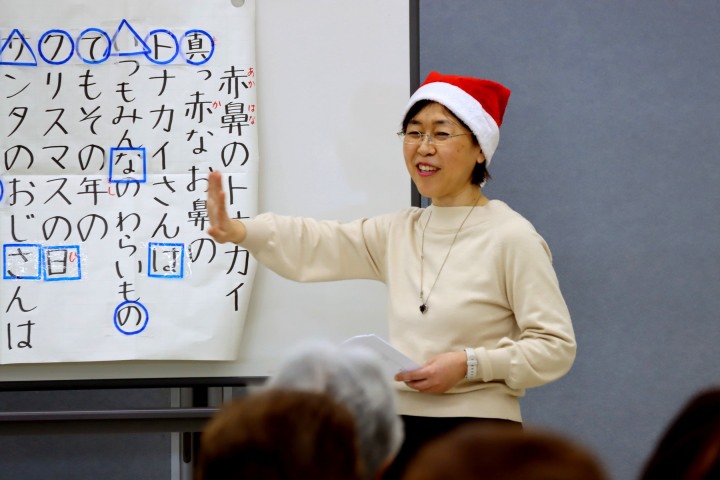 赤鼻のトナカイ
あか はな
真っ赤なお鼻の
か
トナカイさんは
いつもみんなのわらいもの
でもその年の
クリスマスの日
ひ
サンタのおじさんは